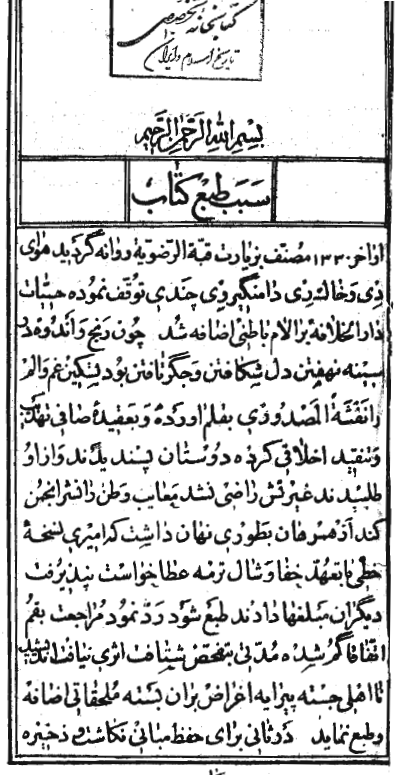 کتابخانه تخصصی
تاریخ اسلام و ایران
بسم الله الرحمن الرحیم
سبب طبع کتاب
اواخر ۱۳۳۰ مصنف بزیارت قبة الرضویة روانه گردید هوای
ری و خاله زی دامنگیر وی چندی توقف نموده حسیات
دار الخلافه بر الام باطنی اضافه شد چون رنج و اندوه در
سینه نهفتن دل شکافتن و جگر تافتن بود تسکین غم و الم
را نفثة المصدوری بقلم اورده و بعقیدۀ صافی تهذیب
و تنقید اخلاقی کرده دوستان پسندیدند و از او
طلبیدند غیرتش راضی نشد معایب وطن را نشر انجمن
کند از همرهان بطوری نهان داشت که امیری نسخۀ
خطی با تعهد خفا و شال ترمه عطا خواست نپذیرفت
دیگران مبلغها دادند طبع شود رد نمود مراجعت بقم
اتفاقا گم شده مدتی بتفحص شتافت اثری نیافت
تا اهلی جسته پیرایه اغراض بران بسته ملحقاتی اضافه
و طبع نماید در ثانی برای حفظ مبانی نگاشت و ذخیره